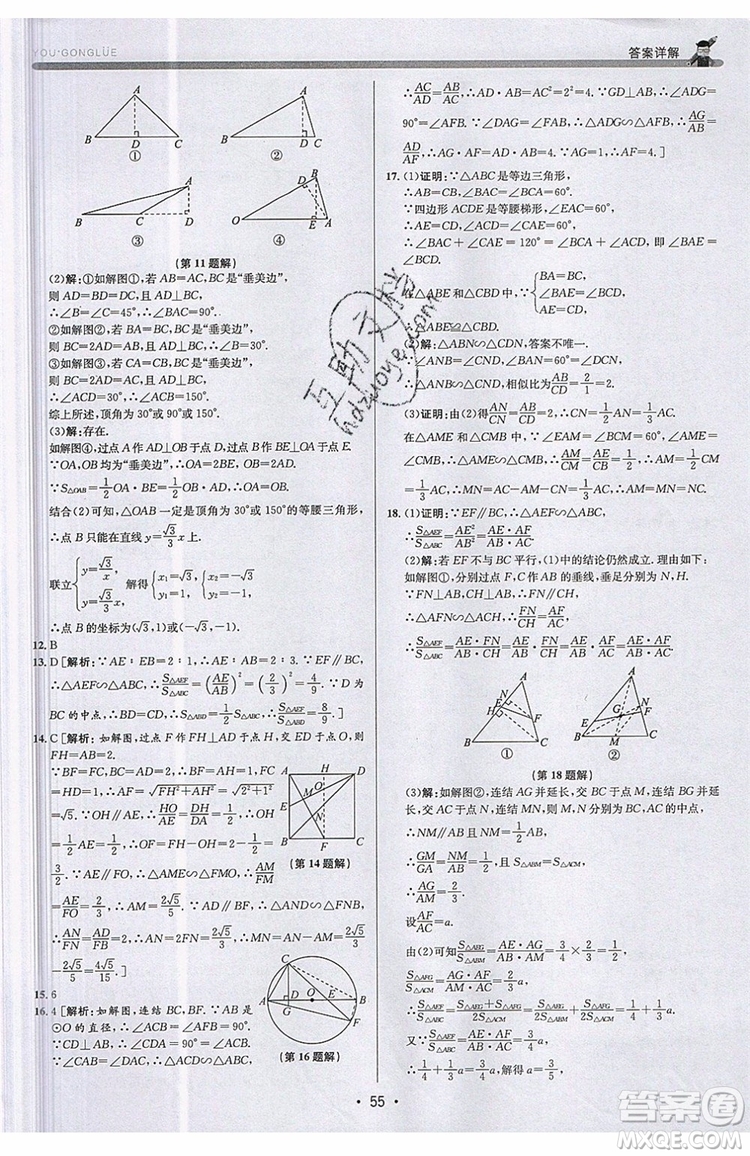 YOU·GONGLÜE
答案详解
A
B
D
C
①
A
B
D
C
②
A
B
C
D
③
B
D
O
E
A
④
(第 11 题解)
(2)解:①如解图①,若 AB=AC,BC是“垂美边”,
则 AD=BD=CD,且 AD⊥BC,
∴∠BAC=90°.
②如解图②,若 BC=BA,BC是“垂美边”,
则 BC=2AD=AB,且 AD⊥BC,∴∠B=30°.
③如解图③,若 CA=CB,BC是“垂美边”,
则 BC=2AD=CA,且 AD⊥BC,∴∠ACD=30°,
∴∠ACD=150°.
综上所述,顶角为 30°或 90°或 150°.
(3)解:存在.
如解图④,过点 A 作 AD⊥OB 于点 D,BE⊥OA 于点 E.
∵OA,OB 均为“垂美边”,∴OA=2BE,OB=2AD.
∵S△OAB=1/2OA·BE=1/2OB·AD,∴OA=OB.
结合(2)可知,△OAB 一定是顶角为 30°或 150°的等腰三角形,
∴点 B 只能在直线 y=√3/3x 上.
联立{y=√3/x, y=√3/3x, 解得{x₁=√3, y₁=1,{x₂=-√3, y₁=-1,
∴点 B 的坐标为(√3,1)或(-√3,-1).
12. B
13. D [解析:∵AE∶EB=2∶1,∴AE∶AB=2∶3.∵EF//BC,
∴△AEF∽△ABC,∴S△AEF/S△ABC=(AE/AB)²=(2/3)²=4/9.∵D 为
BC 的中点,∴S△ABD=1/2S△ABC,∴S△AEF/S△ABD=8/9.]
14. C [解析:如解图,过点 F 作 FH⊥AD 于点 H,交 ED 于点 O,则
FH=AB=2.
∵BF=FC,BC=AD=2,∴BF=AH=1,FC=HD
=1,∴AF=√(FH²+AH²)=√(2²+1²)=√5.∵OH//AE,∴HO/AE=DH/DA=1/2,
∴OH=1/2AE=1/2,∴OF=FH-OH=2-1/2=
3/2.∵AE//FO,∴△AME∽△FMO,∴AM/FM=
AE/FO=2/3,∴AM=2/5AF=2√5/5.∵AD//BF,∴△AND∽△FNB,
∴AN/FN=AD/BF=2,∴AN=2FN=2√5/3,∴MN=AN-AM=2√5/3-
2√5/5=4√5/15.]
A
H
D
M
O
E
N
B
F
C
(第 14 题解)
15. 6
16. 4 [解析:如解图,连结 BC,BF.∵AB 是
⊙O 的直径,∴∠ACB=90°=∠AFB.
∵CD⊥AB,∴∠CDA=90°=∠ACB.
∵∠CAB=∠DAC,∴△CAB∽△DAC,
C
A
D
O
E
B
G
F
(第 16 题解)
∴AC/AD=AB/AC,∴AD·AB=AC²=2²=4.∵GD⊥AB,∴∠ADG=
90°=∠AFB.∵∠GAD=∠BAF,∴△GAD∽△BAF,∴AG/AB=
AD/AF,∴AG·AF=AD·AB=4.]
17. (1)证明:∵△ABC是等边三角形,
∴AB=CB,∠BAC=∠BCA=60°.
∵四边形 ACDE 是等腰梯形,∠EAC=60°,
∴AE=CD,∠ACD=∠CAE=60°,
∴∠BAC+∠CAE=120°=∠BCA+∠ACD,即∠BAE=∠BCD.
在△ABE 和△CBD 中,{BA=BC, ∠BAE=∠BCD, AE=CD,
∴△ABE≌△CBD(SAS).
(2)解:△ABN∽△CDN,答案不唯一.
∵∠BAN=∠DCN=60°,∠ANB=∠CND,
∴△ABN∽△CDN,相似比为AB/CD=2/1=2.
(3)证明:由(2)得AN/CN=AB/CD=2,∴CN=1/2AN=1/3AC.同理AM=1/3AC.
在△AME 和△CMB 中,∵∠EAM=∠BCM,∠AME=
∠CMB,∴△AME∽△CMB,∴AM/CM=AE/CB=1/2,∴AM=
1/3AC,∴MN=AC-AM-CN=1/3AC,∴AM=MN=NC.
18. (1)证明:∵EF//BC,∴△AEF∽△ABC,∴AE/AB=AF/AC,
∴S△AEF/S△ABC=AE²/AB²=AE·AF/AB·AC.
(2)解:若 EF 不与 BC 平行,(1)中的结论仍然成立.理由如下:
如解图①,分别过点 F,C 作 AB 的垂线,垂足分别为 N,H.
∵FN⊥AB,CH⊥AB,∴FN//CH,
∴△AFN∽△ACH,∴FN/CH=AF/AC,
∴S△AEF/S△ABC=(1/2AE·FN)/(1/2AB·CH)=AE·AF/AB·AC.
A
N
E
H
F
B
C
①
A
N
G
F
E
B
M
C
②
(第 18 题解)
(3)解:如解图②,连结 AG 并延长,交 BC 于点 M,连结 BG 并延长,
交 AC 于点 N,连结 MN,则 M,N 分别为 BC,AC 的中点,
∴NM//AB,且 NM=1/2AB,
∴GM/GA=GN/GB=NM/AB=1/2,且 S△ABM=S△ACM,
∴AG/AM=2/3.
设AF/AC=a.
由(2)可知S△AEG/S△ABM=AE·AG/AB·AM=1/2,S△AFG/S△ACM=AG·AF/AM·AC=2/3a,
∴S△AEF/S△ABC=(S△AEG+S△AFG)/2S△ACM=S△AEG/2S△ACM+S△AFG/2S△ACM=1/4+1/3a.
又∵S△AEF/S△ABC=AE·AF/AB·AC=3/4a,∴1/4+1/3a=3/4a,解得a=3/5,
· 55 ·
互助文档
hdzuoye.com
答案圈
MXQE.COM